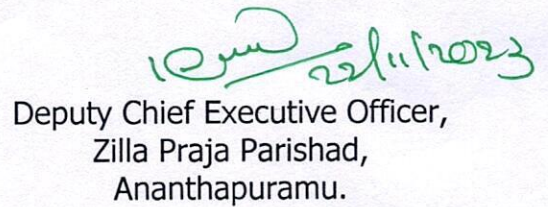 22/11/2023
Deputy Chief Executive Officer,
Zilla Praja Parishad,
Ananthapuramu.